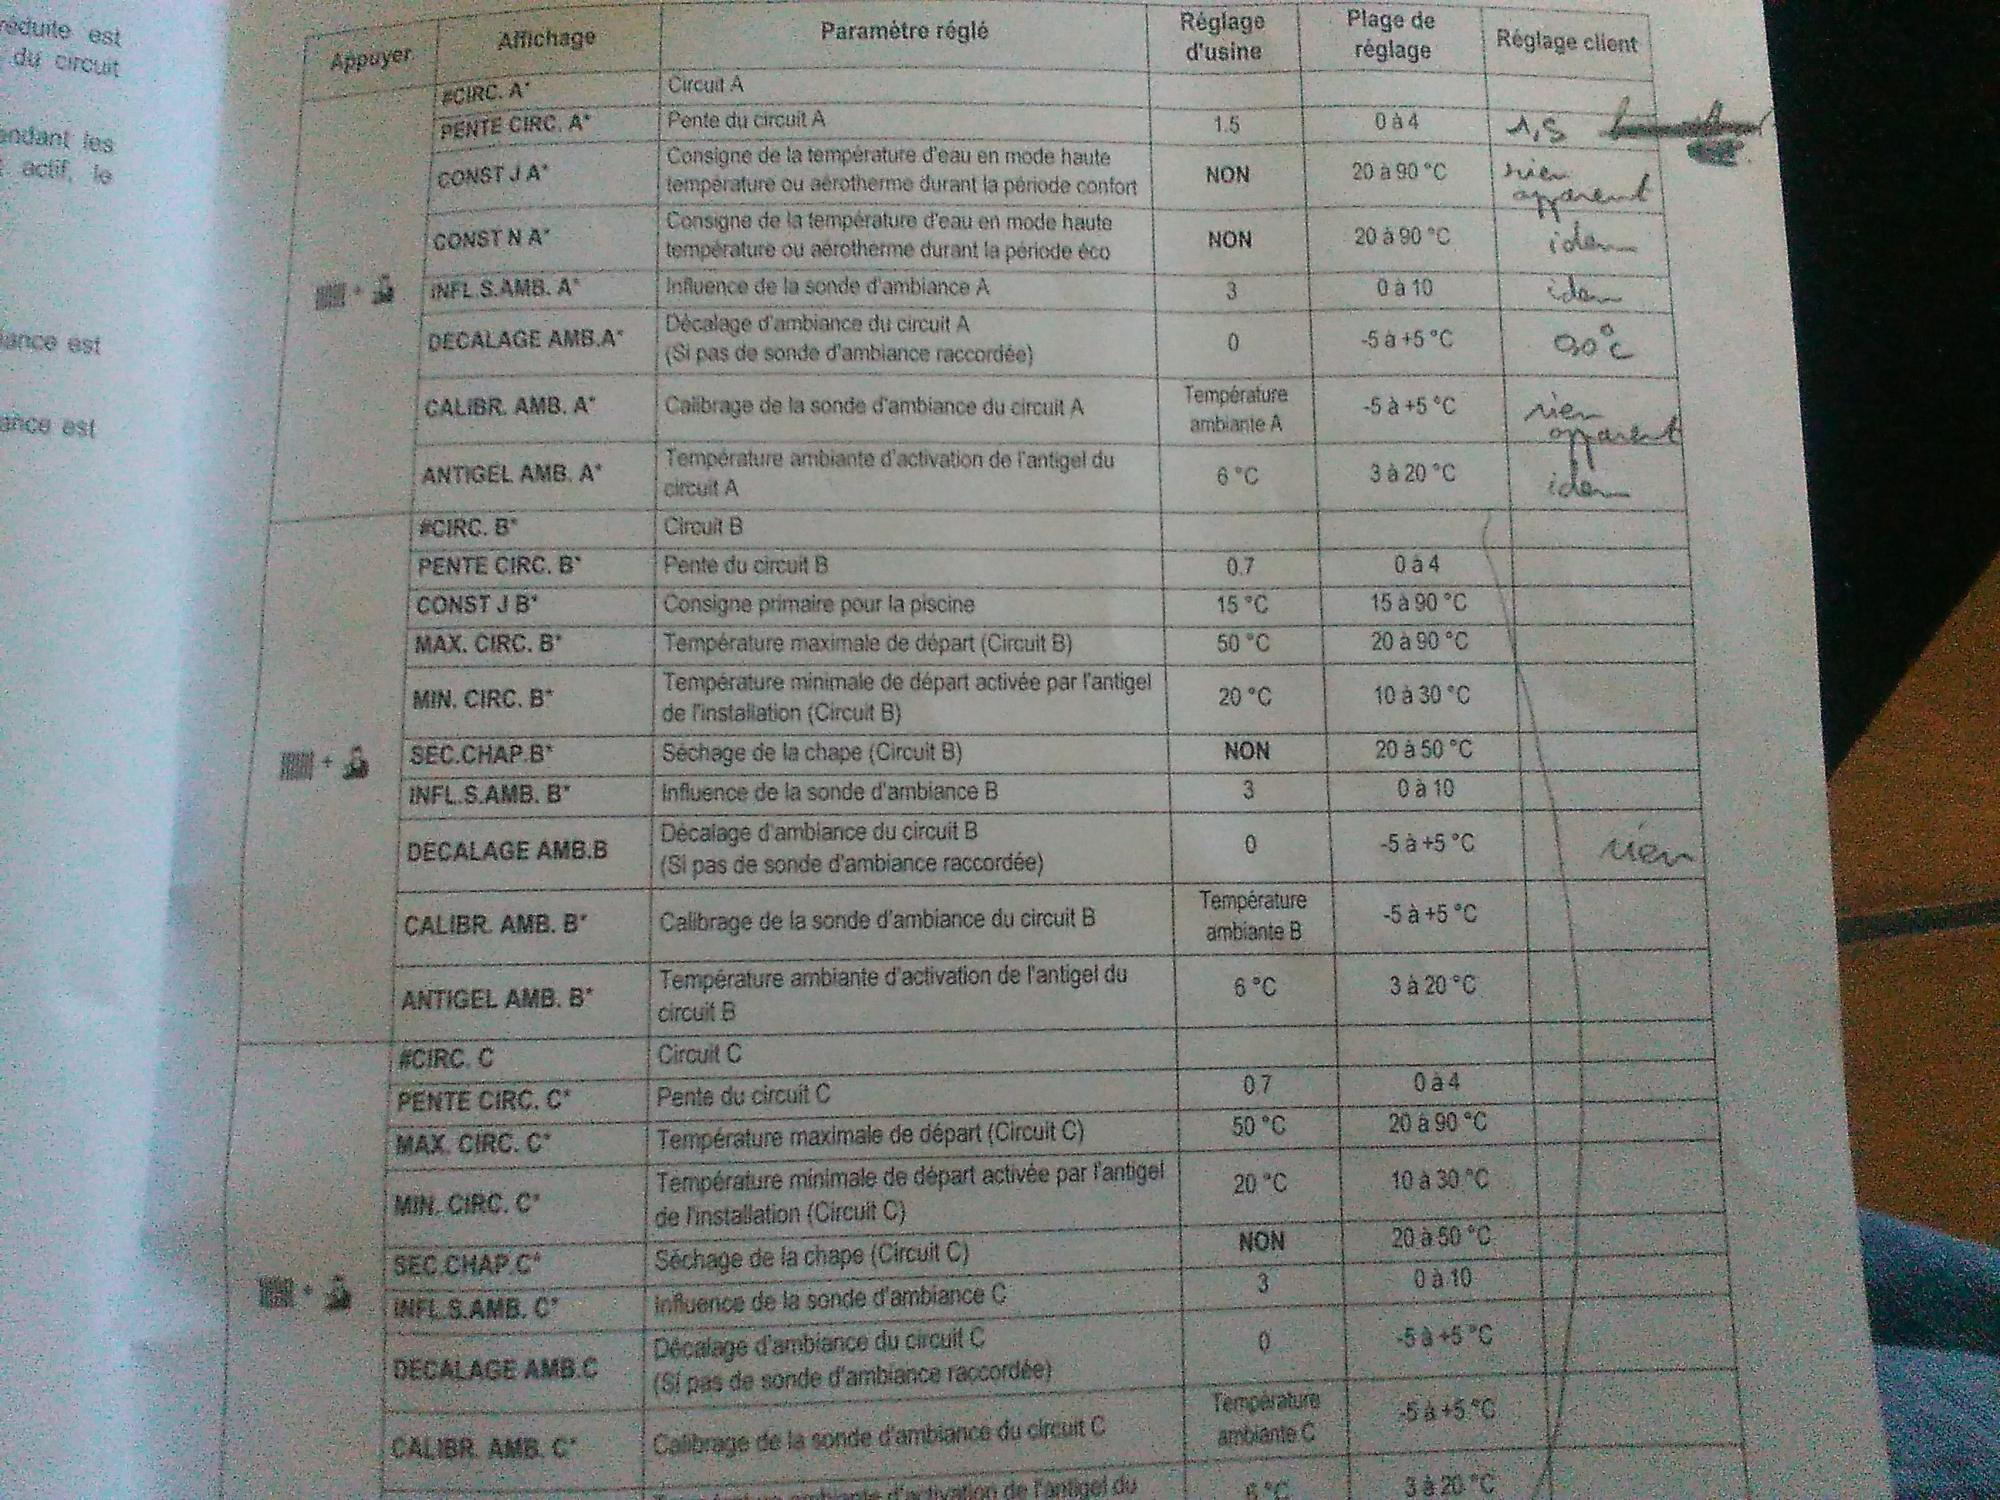 réduite est
du circuit
endant les
t actif, le
ance est
ance est
Appuyer Affichage Paramètre réglé Réglage d'usine Plage de réglage Réglage client
#CIRC. A* Circuit A
PENTE CIRC. A* Pente du circuit A 1.5 0 à 4 1,5
CONST J A* Consigne de la température d'eau en mode haute
température ou aérotherme durant la période confort NON 20 à 90 °C rien apparent
CONST N A* Consigne de la température d'eau en mode haute
température ou aérotherme durant la période éco NON 20 à 90 °C idem
+ INFL.S.AMB. A* Influence de la sonde d'ambiance A 3 0 à 10 idem
DECALAGE AMB.A* Décalage d'ambiance du circuit A
(Si pas de sonde d'ambiance raccordée) 0 -5 à +5 °C
CALIBR. AMB. A* Calibrage de la sonde d'ambiance du circuit A Température ambiante A -5 à +5 °C rien apparent
ANTIGEL AMB. A* Température ambiante d'activation de l'antigel du
circuit A 6 °C 3 à 20 °C idem
#CIRC. B* Circuit B
PENTE CIRC. B* Pente du circuit B 0.7 0 à 4
CONST J B* Consigne primaire pour la piscine 15 °C 15 à 90 °C
MAX. CIRC. B* Température maximale de départ (Circuit B) 50 °C 20 à 90 °C
MIN. CIRC. B* Température minimale de départ activée par l'antigel
de l'installation (Circuit B) 20 °C 10 à 30 °C
+ SEC.CHAP.B* Séchage de la chape (Circuit B) NON 20 à 50 °C
INFL.S.AMB. B* Influence de la sonde d'ambiance B 3 0 à 10
DECALAGE AMB.B Décalage d'ambiance du circuit B
(Si pas de sonde d'ambiance raccordée) 0 -5 à +5 °C rien
CALIBR. AMB. B* Calibrage de la sonde d'ambiance du circuit B Température ambiante B -5 à +5 °C
ANTIGEL AMB. B* Température ambiante d'activation de l'antigel du
circuit B 6 °C 3 à 20 °C
#CIRC. C Circuit C
PENTE CIRC. C* Pente du circuit C 0.7 0 à 4
MAX. CIRC. C* Température maximale de départ (Circuit C) 50 °C 20 à 90 °C
MIN. CIRC. C* Température minimale de départ activée par l'antigel
de l'installation (Circuit C) 20 °C 10 à 30 °C
SEC.CHAP.C* Séchage de la chape (Circuit C) NON 20 à 50 °C
+ INFL.S.AMB. C* Influence de la sonde d'ambiance C 3 0 à 10
DECALAGE AMB.C Décalage d'ambiance du circuit C
(Si pas de sonde d'ambiance raccordée) 0 -5 à +5 °C
CALIBR. AMB. C* Calibrage de la sonde d'ambiance du circuit C Température ambiante C -5 à +5 °C
Température ambiante d'activation de l'antigel du 6 °C 3 à 20 °C